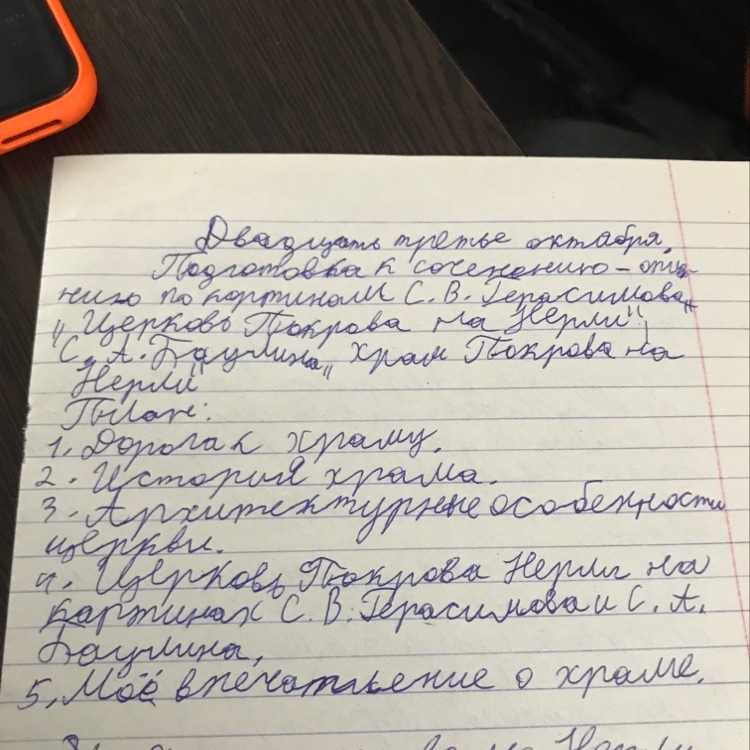 Двадцать третье октября.
Подготовка к сочинению-описа-
нию по картинам С. В. Герасимова
"Церковь Покрова на Нерли",
С. А. Баулина "Храм Покрова на
Нерли"
План:
1. Дорога к храму.
2. История храма.
3. Архитектурные особенности
церкви.
4. Церковь Покрова Нерли на
картинах С. В. Герасимова и С. А.
Баулина.
5. Моё впечатление о храме.